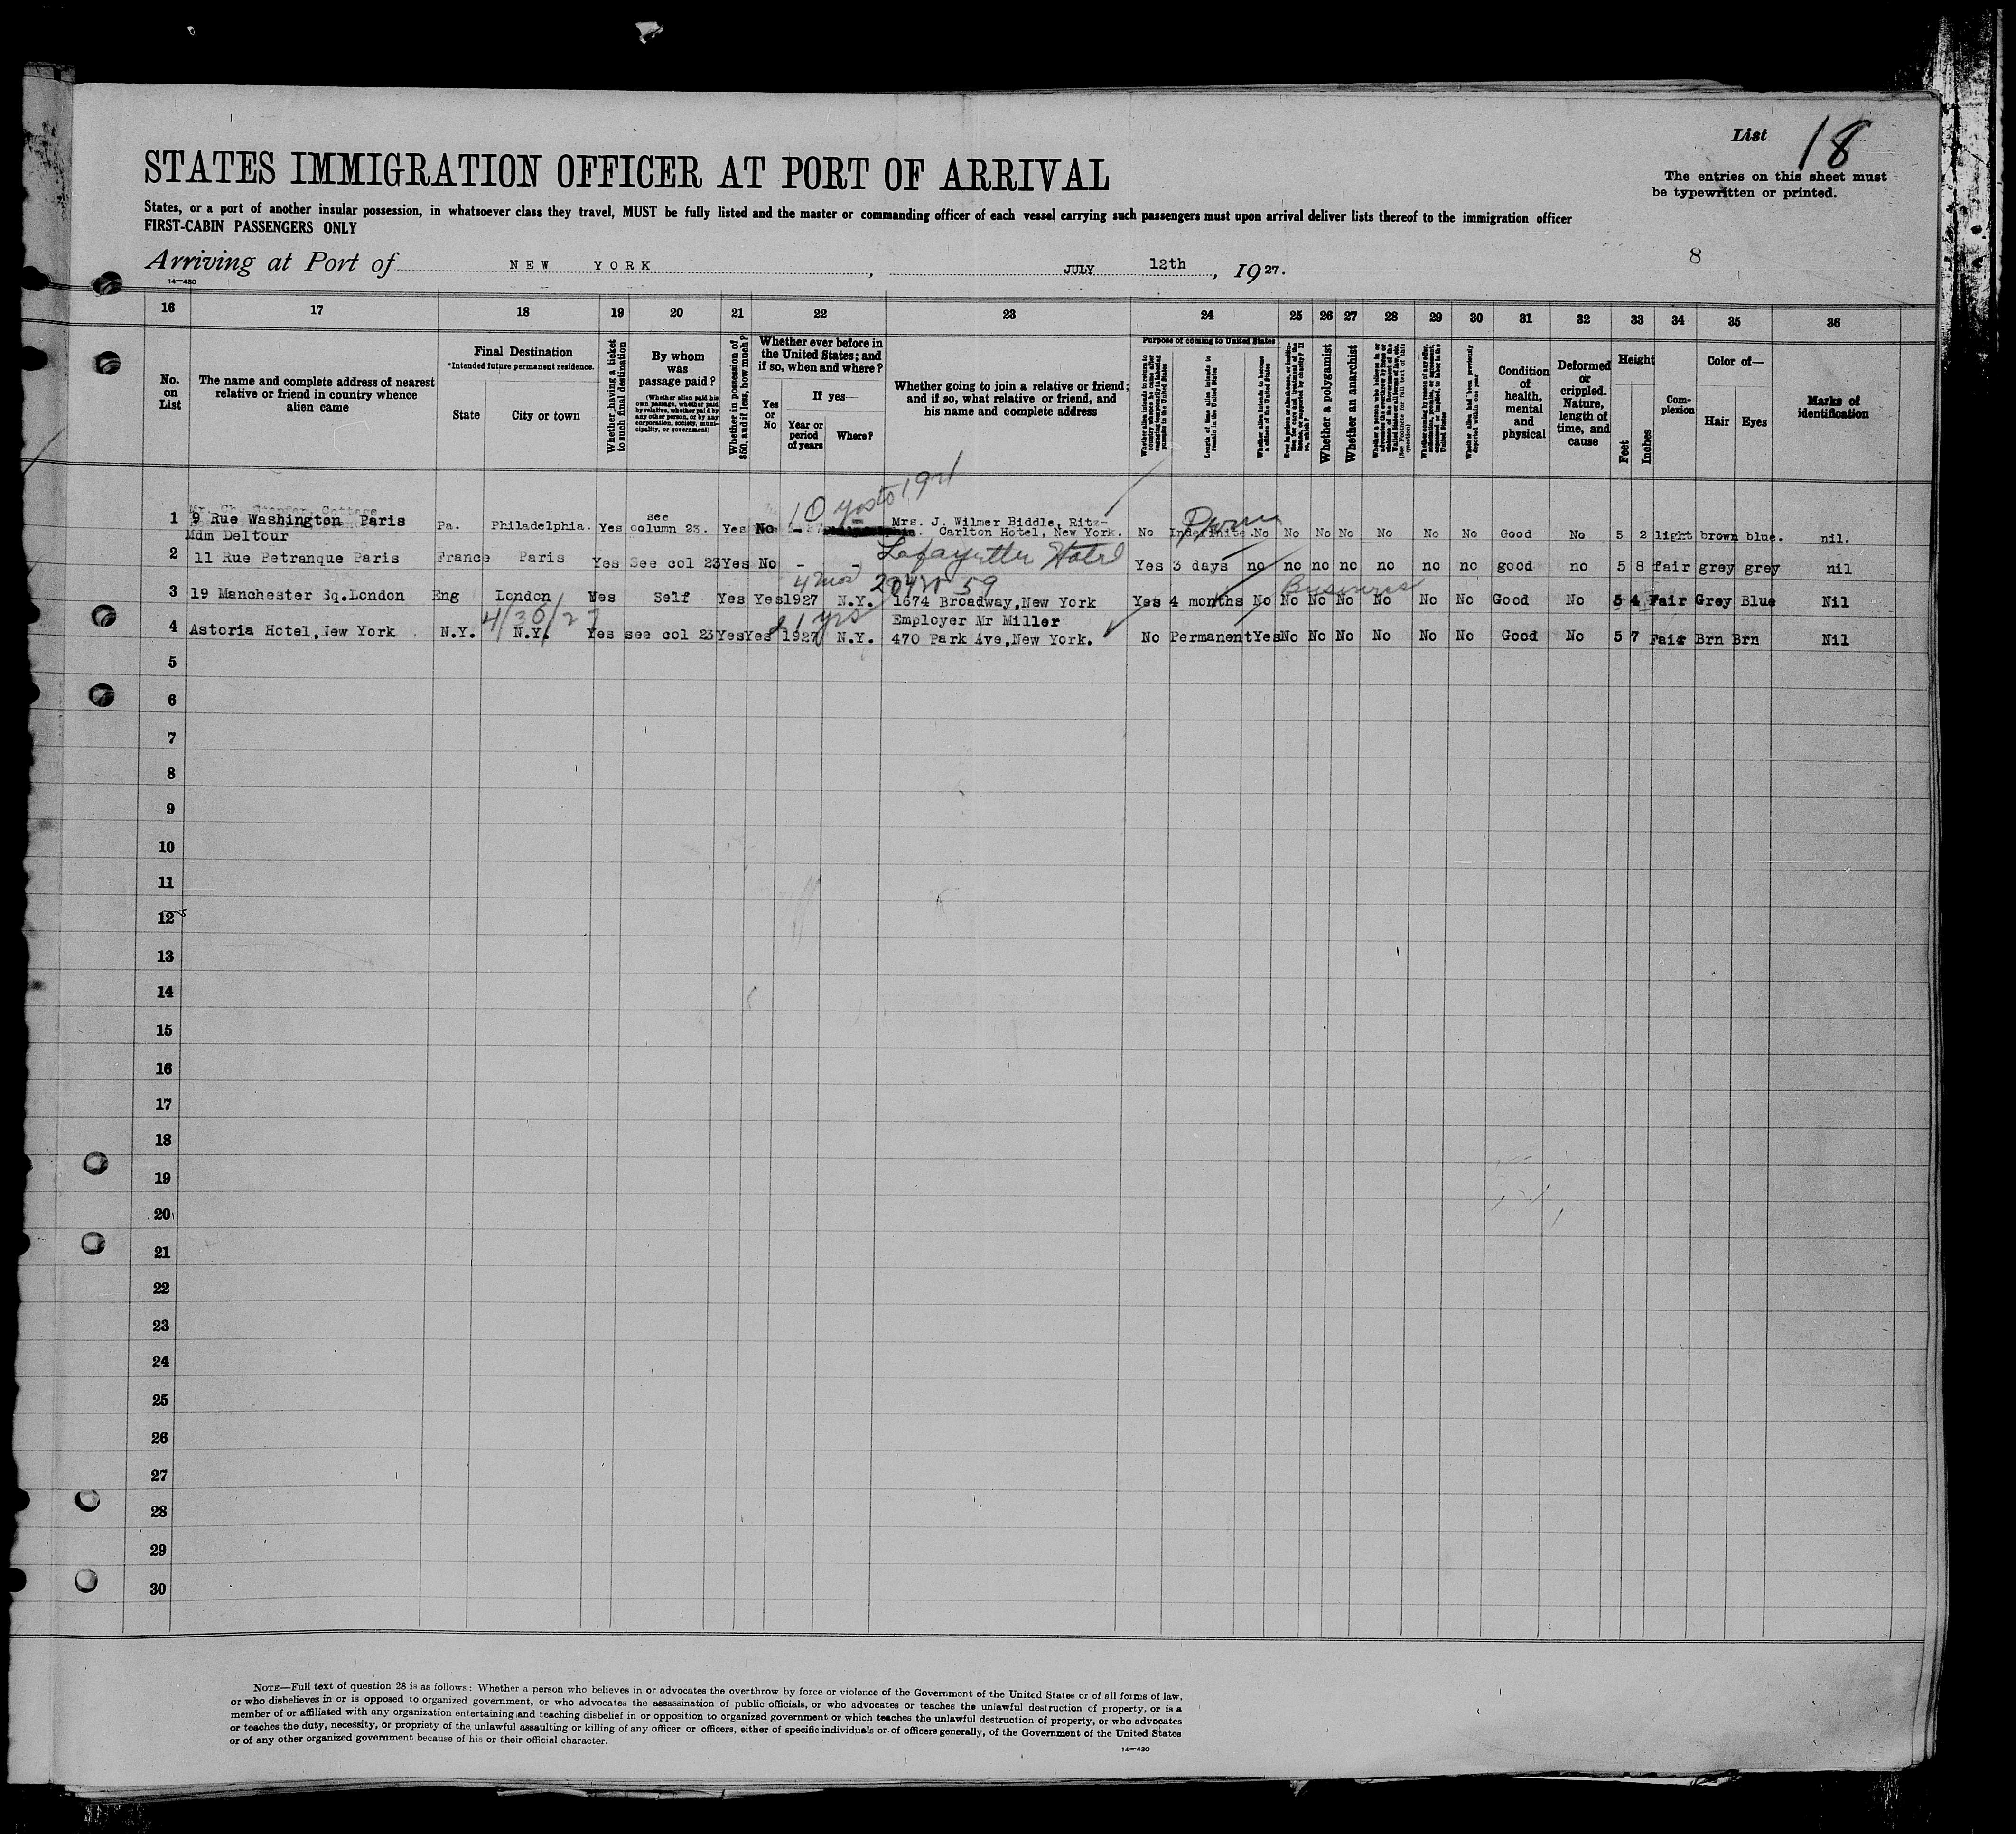 List 18
STATES IMMIGRATION OFFICER AT PORT OF ARRIVAL
The entries on this sheet must
be typewritten or printed.
States, or a port of another insular possession, in whatsoever class they travel, MUST be fully listed and the master or commanding officer of each vessel carrying such passengers must upon arrival deliver lists thereof to the immigration officer
FIRST-CABIN PASSENGERS ONLY
8
Arriving at Port of NEW YORK, JULY 12th, 1927.
14—430
16 17 18 19 20 21 22 23 24 25 26 27 28 29 30 31 32 33 34 35 36
No. on List
The name and complete address of nearest relative or friend in country whence alien came
Final Destination
*Intended future permanent residence.
State
City or town
Whether having a ticket to such final destination
By whom was passage paid?
(Whether alien paid his own passage, whether paid by relative, whether paid by any other person, or by any corporation, society, municipality, or government)
Whether in possession of $50, and if less, how much?
Whether ever before in the United States; and if so, when and where?
Yes or No
If yes—
Year or period of years
Where?
Whether going to join a relative or friend; and if so, what relative or friend, and his name and complete address
Purpose of coming to United States
Whether alien intends to return to country whence he came after engaging temporarily in laboring pursuits in the United States
Length of time alien intends to remain in the United States
Whether alien intends to become a citizen of the United States
Ever in prison or almshouse, or institution for care and treatment of the insane, or supported by charity? If so, which?
Whether a polygamist
Whether an anarchist
Whether coming by reason of any offer, solicitation, promise, or agreement, expressed or implied, to labor in the United States
Whether alien had been previously deported within one year
Condition of health, mental and physical
Deformed or crippled. Nature, length of time, and cause
Height
Feet
Inches
Complexion
Color of—
Hair
Eyes
Marks of identification
10 yrs to 1921
1 9 Rue Washington Paris Pa. Philadelphia. Yes see column 23. Yes No - Mrs. J. Wilmer Biddle, Ritz-Carlton Hotel, New York. No Indefinite. No No No No No No No Good No 5 2 light brown blue. nil.
Perm
Mdm Deltour
Lafayette Hotel
2 11 Rue Petranque Paris France Paris Yes See col 23 Yes No - - Yes 3 days no no no no no no no good no 5 8 fair grey grey nil
4 mos 204 W 59 Business
3 19 Manchester Sq.London Eng London Yes Self Yes Yes 1927 N.Y. 1674 Broadway,New York Yes 4 months No No No No No No No Good No 5 4 Fair Grey Blue Nil
4/30/27 yrs Employer Mr Miller
4 Astoria Hotel,New York N.Y. N.Y. Yes see col 23 Yes Yes 1927 N.Y. 470 Park Ave,New York. No Permanent Yes No No No No No No Good No 5 7 Fair Brn Brn Nil
5
6
7
8
9
10
11
12
13
14
15
16
17
18
19
20
21
22
23
24
25
26
27
28
29
30
NOTE—Full text of question 28 is as follows: Whether a person who believes in or advocates the overthrow by force or violence of the Government of the United States or of all forms of law,
or who disbelieves in or is opposed to organized government, or who advocates the assassination of public officials, or who advocates or teaches the unlawful destruction of property, or is a
member of or affiliated with any organization entertaining and teaching disbelief in or opposition to organized government or which teaches the unlawful destruction of property, or who advocates
or teaches the duty, necessity, or propriety of the unlawful assaulting or killing of any officer or officers, either of specific individuals or of officers generally, of the Government of the United States
or of any other organized government because of his or their official character.
14—430